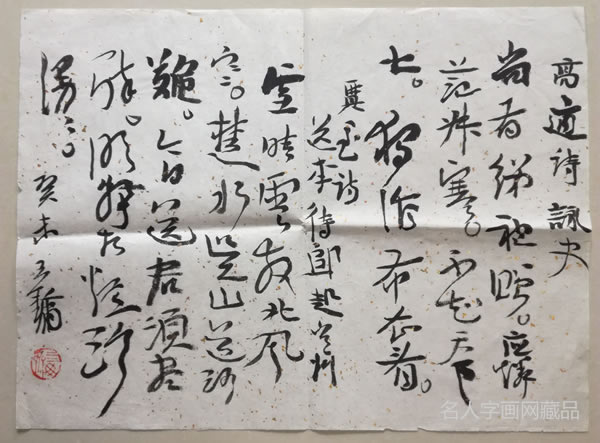 高適詩 詠史
尚有綈袍贈。應憐
范叔寒。不知天下
士。猶作布衣看。
賈至詩
送李侍郎赴常州
雪晴雲散北風
寒。楚水吳山道路
難。今日送君須盡
醉。明朝相憶路
漫漫。
癸未 王鏞
名人字画网藏品